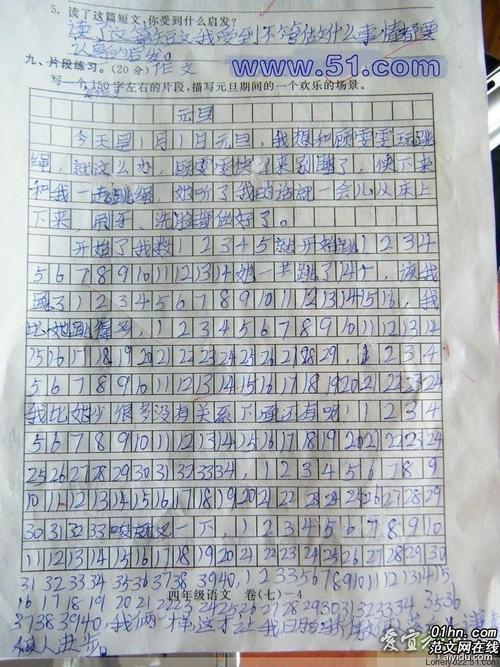 5. 读了这篇短文，你受到什么启发？
读了这篇短文我受到不管做什么事情都要
认真的启发。
九、片段练习。(20分) 作文
www.51.com
写一个150字左右的片段，描写元旦期间的一个欢乐的场景。
元旦
今天是1月1日元旦，我想和顾雯雯玩跳
绳，就这么办，顾雯雯快了来别睡了，快下来
和我一起跳绳，她听了我的话就一会儿从床上
下来，刷牙、洗脸都做好了。
开始了我数1 2 3 4 5就开始跳1 2 3 4
5 6 7 8 9 10 11 12 13 14她一共跳了14下，该我
跳了1 2 3 4 5 6 7 8 9 10 11 12 13 14 15 16，我
比她跳得多，1 2 3 4 5 6 7 8 9 10 11 12 13 14
15 16 17 18 19 20 21 22 23 24 25 26 27 28 29，1 2 3 4
5 6 7 8 9 10 11 12 13 14 15 16 17 18 19 20 21 22 23 24
我比她少很多没有关系下面还有呀1 2 3 4
5 6 7 8 9 10 11 12 13 14 15 16 17 18 19 20 21 22 23 24
25 26 27 28 29 30 31 32 33 34，1 2 3 4 5 6 7 8 9
10 11 12 13 14 15 16 17 18 19 20 21 22 23 24 25 26 27 28 29
30 31 32 33 一下，1 2 3 4 5 6 7 8 9 10
11 12 13 14 15 16 17 18 19 20 21 22 23 24 25 26 27 28 29 30
31 32 33 34 35 36 37 38 39 40，1 2 3 3 5 6 7 8 9 10 11 12 13 14 15
四年级语文 卷(七)—4
16 17 18 19 20 21 22 23 24 25 26 27 28 29 30 31 32 33 34 35 36
37 38 39 40，我俩一样，这才让我
人进步。
爱宜
01hn.com
范文网
Taiyidu.com